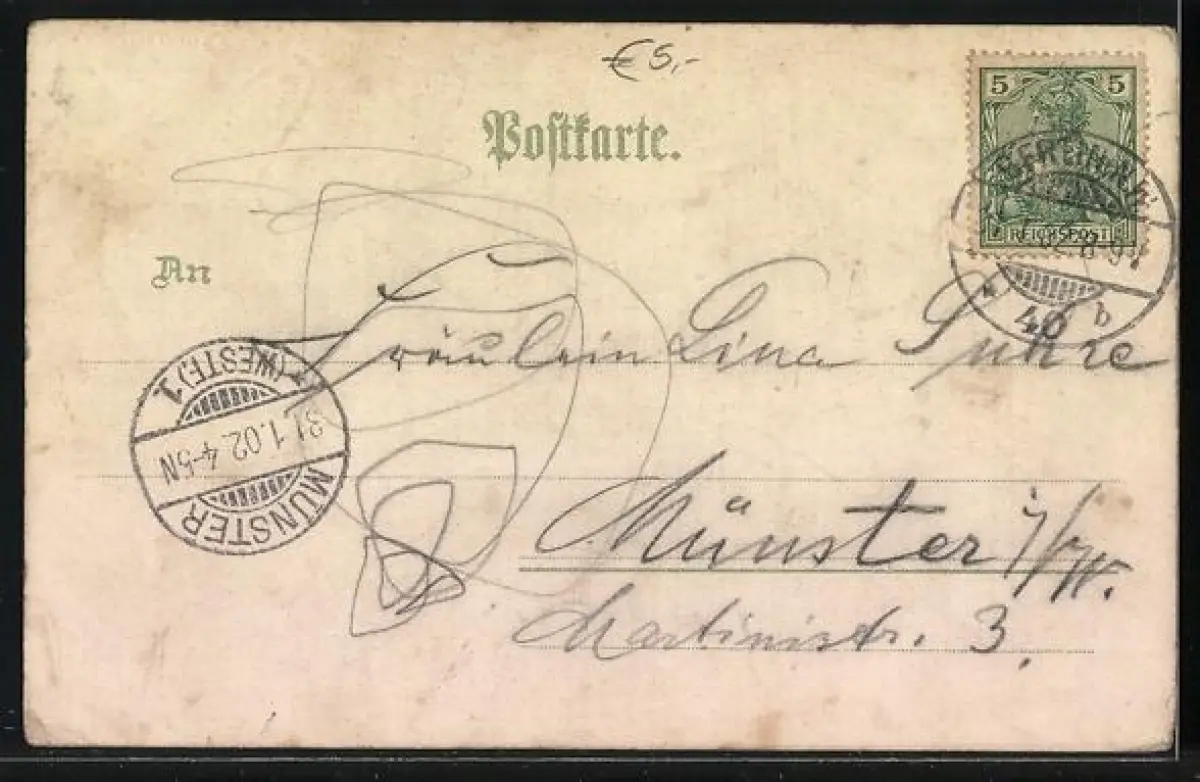 € 5,-
Postkarte.
5 5
REICHSPOST
BERLIN
8-9V
40 b
An
Fräulein Lina
Münster i/W.
Martinistr. 3.
MÜNSTER
31.1.02. 4-5N
(WESTF.) 1